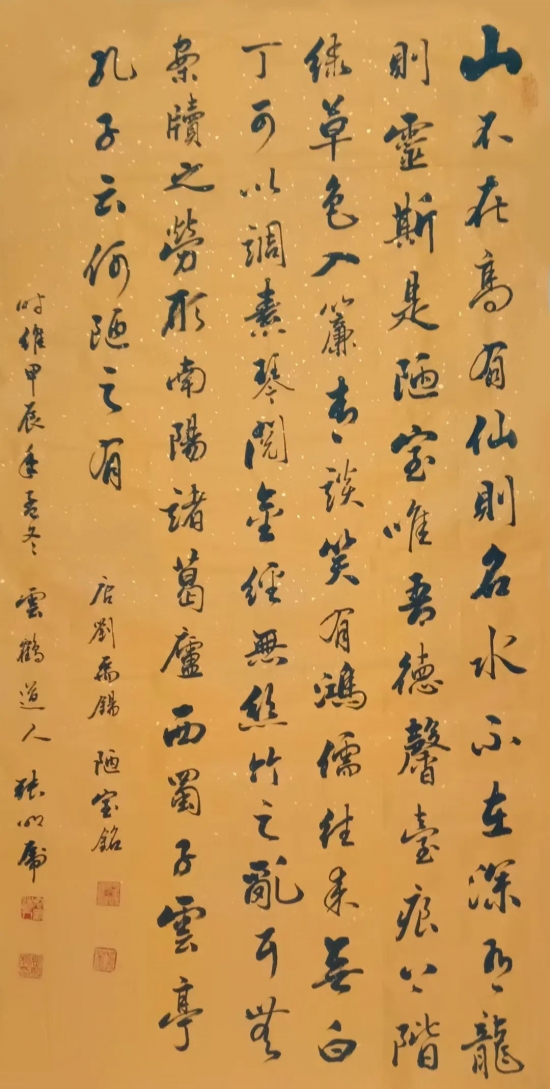 山不在高有仙則名水不在深有龍
則靈斯是陋室唯吾德馨臺痕上階
綠草色入簾青談笑有鴻儒往來無白
丁可以調素琴閱金經無絲竹之亂耳無
案牘之勞形南陽諸葛廬西蜀子雲亭
孔子云何陋之有
唐劉禹錫 陋室銘
時維甲辰年孟冬 雲鶴道人 張